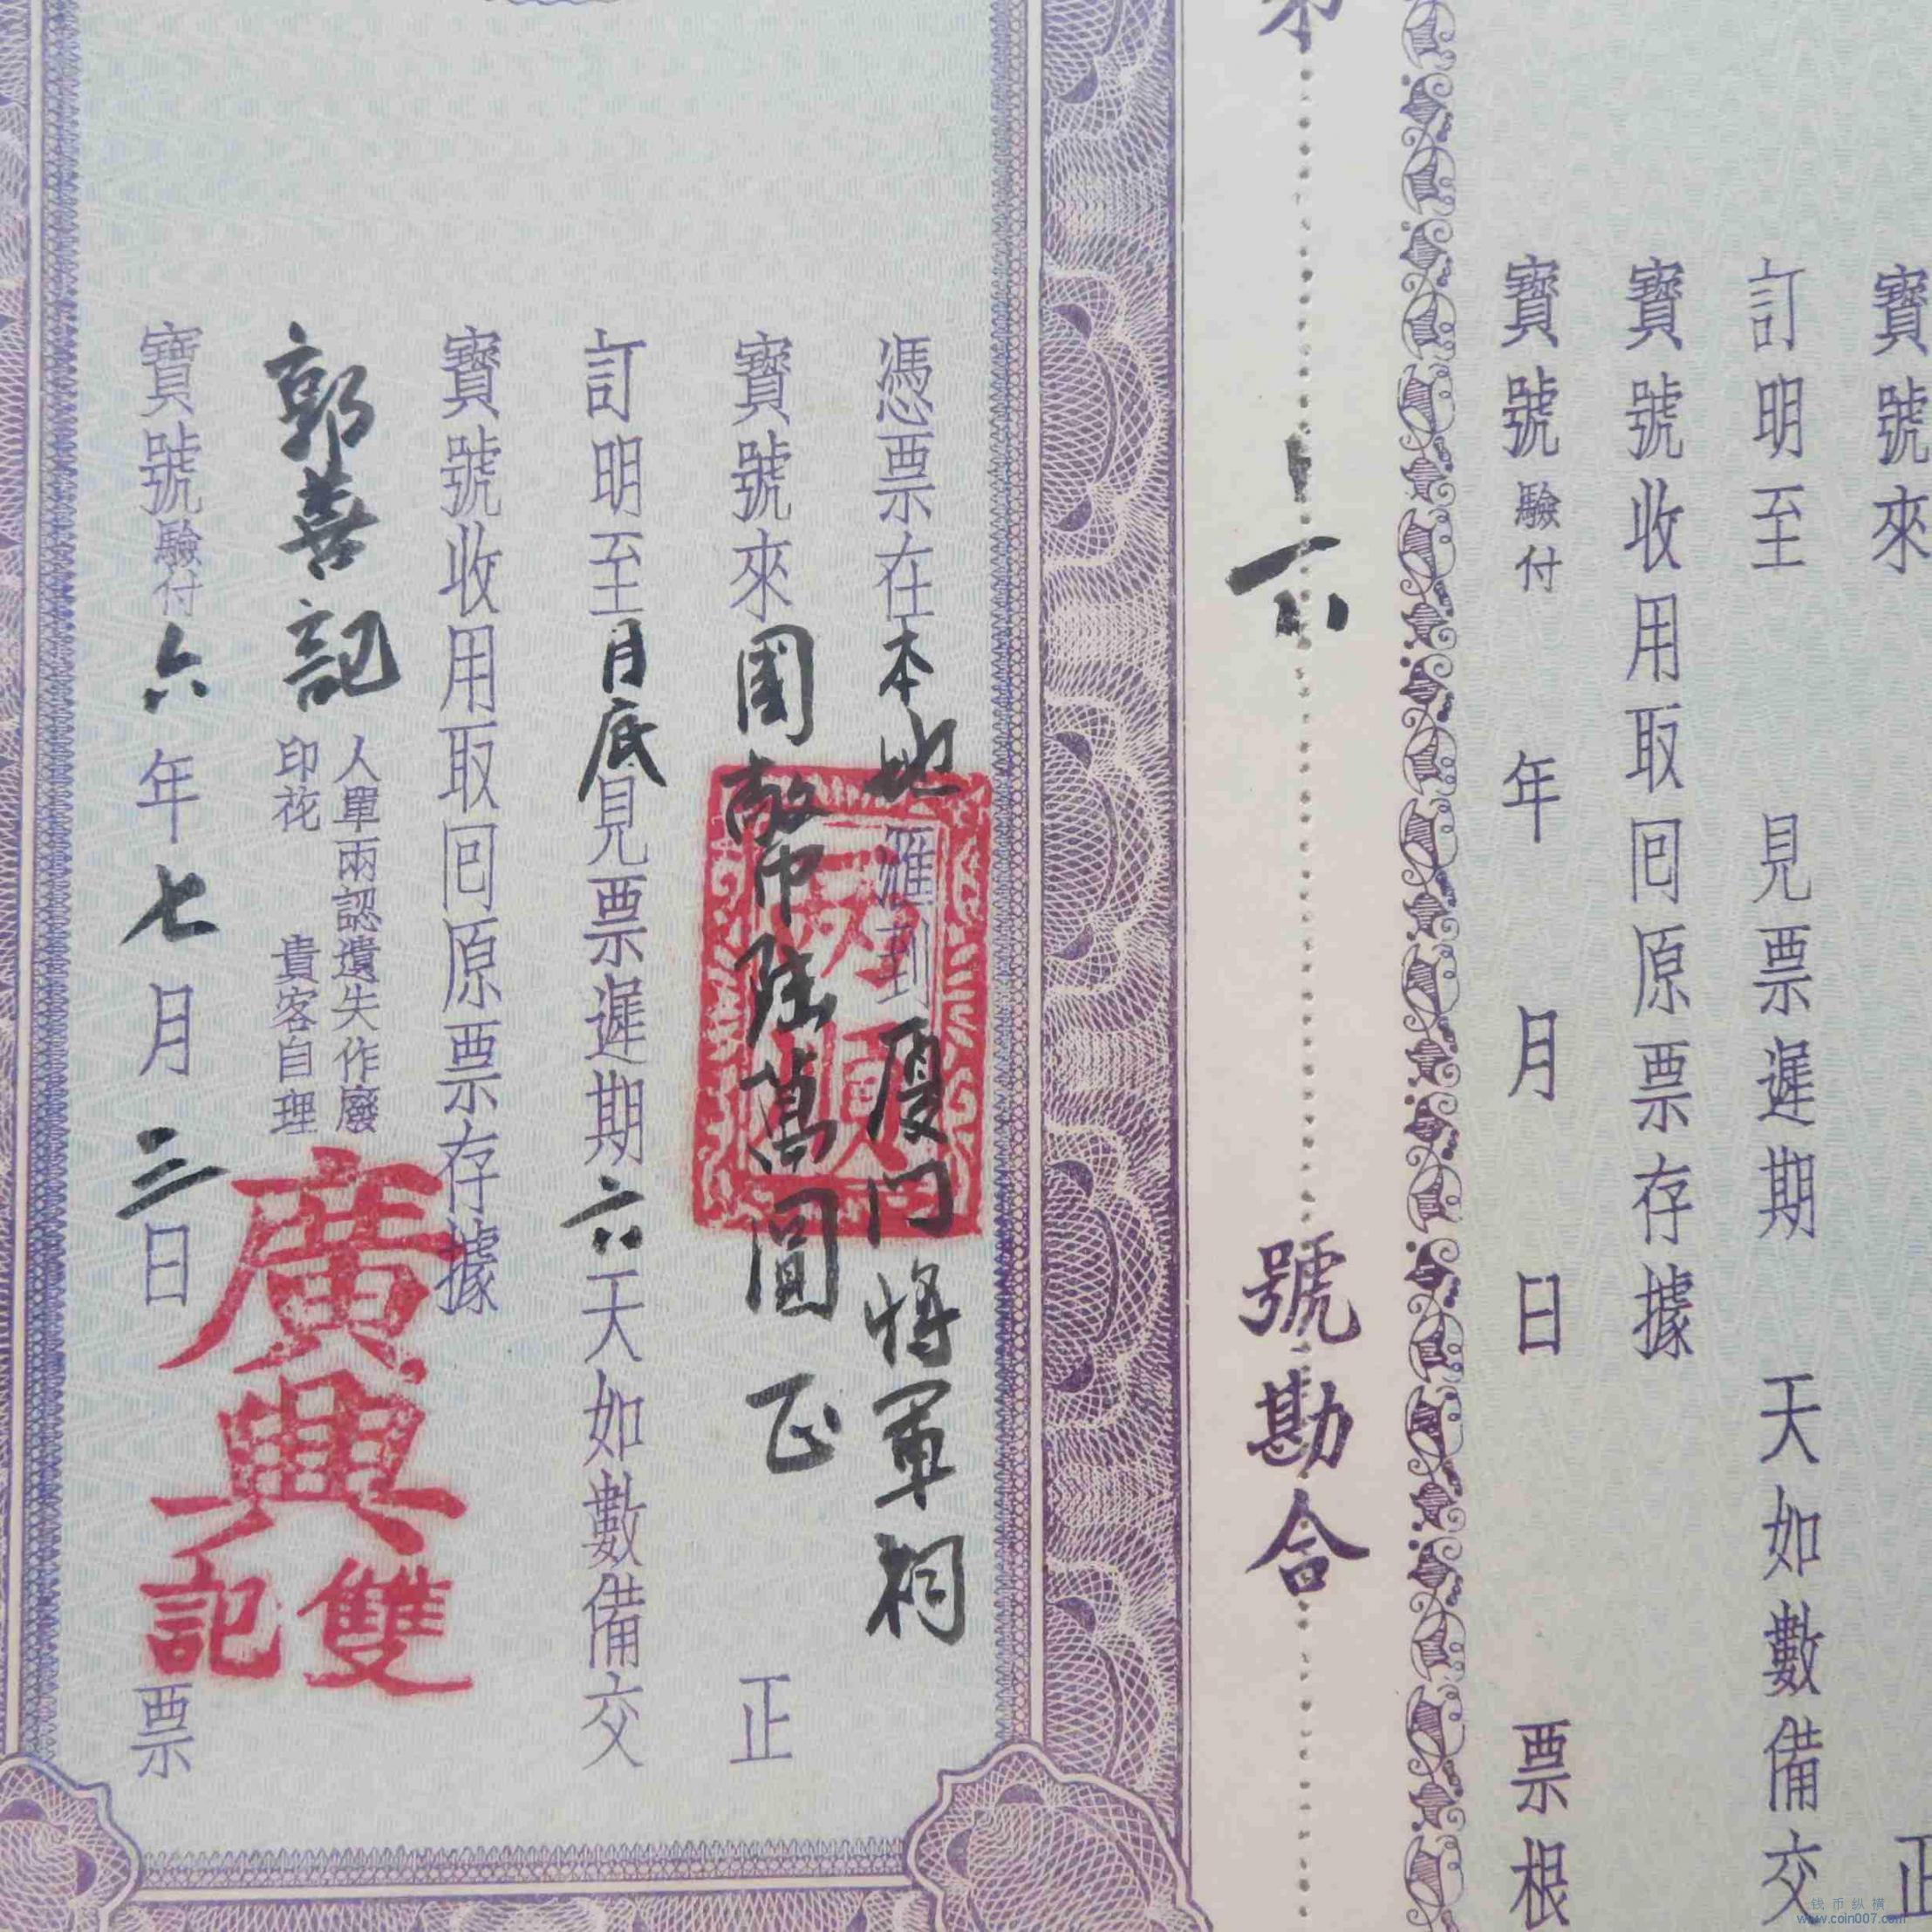 寶號來 正
訂明至 見票遲期 天如數備交
寶號收用取回原票存據
寶號驗付 年 月 日 票根
十六 號勘合
憑票在本地匯到厦門將軍祠
寶號來國幣陸萬圓正 正
訂明至月底見票遲期六天如數備交
寶號收用取回原票存據
郭善記
人單兩認遺失作廢
印花 貴客自理
寶號驗付六年七月三日 票
廣興
雙記
钱币纵横
www.coin007.com